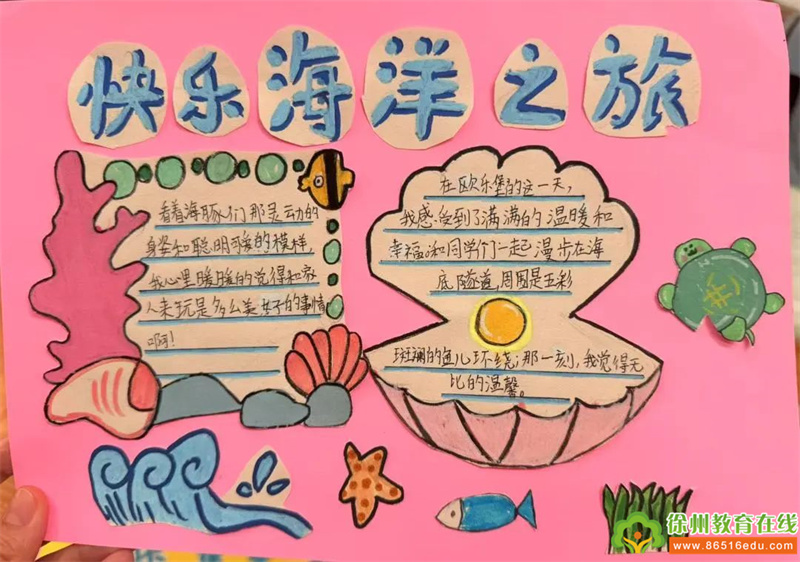 快乐海洋之旅
看着海豚们那灵动的
身姿和聪明可爱的模样,
我心里暖暖的觉得和家
人来玩是多么美好的事情
啊!
在欧乐堡的这一天,
我感受到了满满的温暖和
幸福。和同学们一起漫步在海
底隧道,周围是五彩
斑斓的鱼儿环绕;那一刻,我觉得无
比的温馨。
徐州教育在线
www.86516edu.com